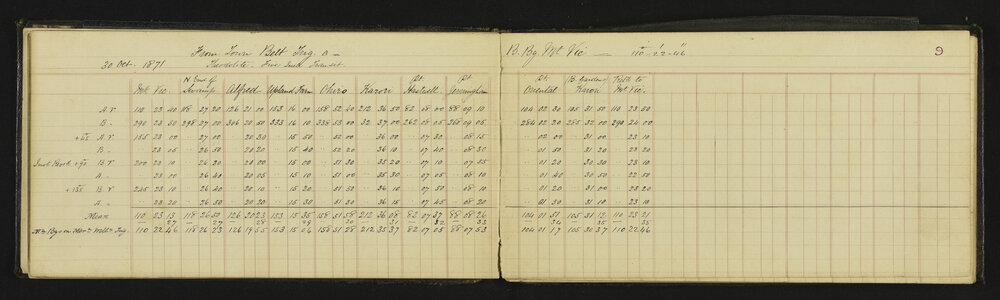 From Town Belt Trig. a –
B. Bg. Mt Vic — 110° 22 - 46
9
30 Oct. 1871
Theodolite. Five Inch Transit.
Mt Vic. N. End of Swamp Alfred Upland Farm Ohiro Karori Pt. Halswell Pt. Jerningham Pt. Oriental B. Gardens Karori Truth to Mt Vic.
A r 110 23 40 118 27 20 126 21 00 153 16 00 158 52 20 212 36 50 82 08 00 88 09 10 104 02 30 105 31 50 110 23 50
B. 290 23 50 298 27 00 306 20 50 333 16 10 338 53 00 32 37 00 262 08 05 268 09 05 284 02 20 285 32 00 290 24 00
+45 A r 155 23 00 .. 27 00 .. 20 30 .. 15 50 .. 52 00 .. 36 00 .. 07 30 .. 08 15 .. 02 00 .. 31 00 .. 23 10
B. .. 23 05 .. 26 50 .. 20 20 .. 15 40 .. 52 20 .. 36 10 .. 07 40 .. 08 30 .. 01 50 .. 31 20 .. 23 20
+90 B r 200 23 10 .. 26 20 .. 20 00 .. 15 00 .. 51 30 .. 35 20 .. 07 10 .. 07 55 .. 01 20 .. 30 30 .. 23 10
A. .. 23 00 .. 26 40 .. 20 05 .. 15 10 .. 51 00 .. 35 30 .. 07 05 .. 08 10 .. 01 40 .. 30 50 .. 22 50
+135 B r 245 23 10 .. 26 40 .. 20 10 .. 15 20 .. 51 30 .. 36 10 .. 07 50 .. 08 10 .. 01 20 .. 31 00 .. 23 20
A. .. 23 20 .. 26 50 .. 20 20 .. 15 30 .. 51 50 .. 36 15 .. 07 45 .. 08 20 .. 01 30 .. 31 10 .. 23 10
Mean 110 23 13 118 26 50 126 20 23 153 15 35 158 51 58 212 36 08 82 07 37 88 08 26 104 01 51 105 31 12 110 23 21
110 22 46 118 26 23 126 19 55 153 15 06 158 51 28 212 35 37 82 07 05 88 07 53 104 01 17 105 30 37 110 22 46